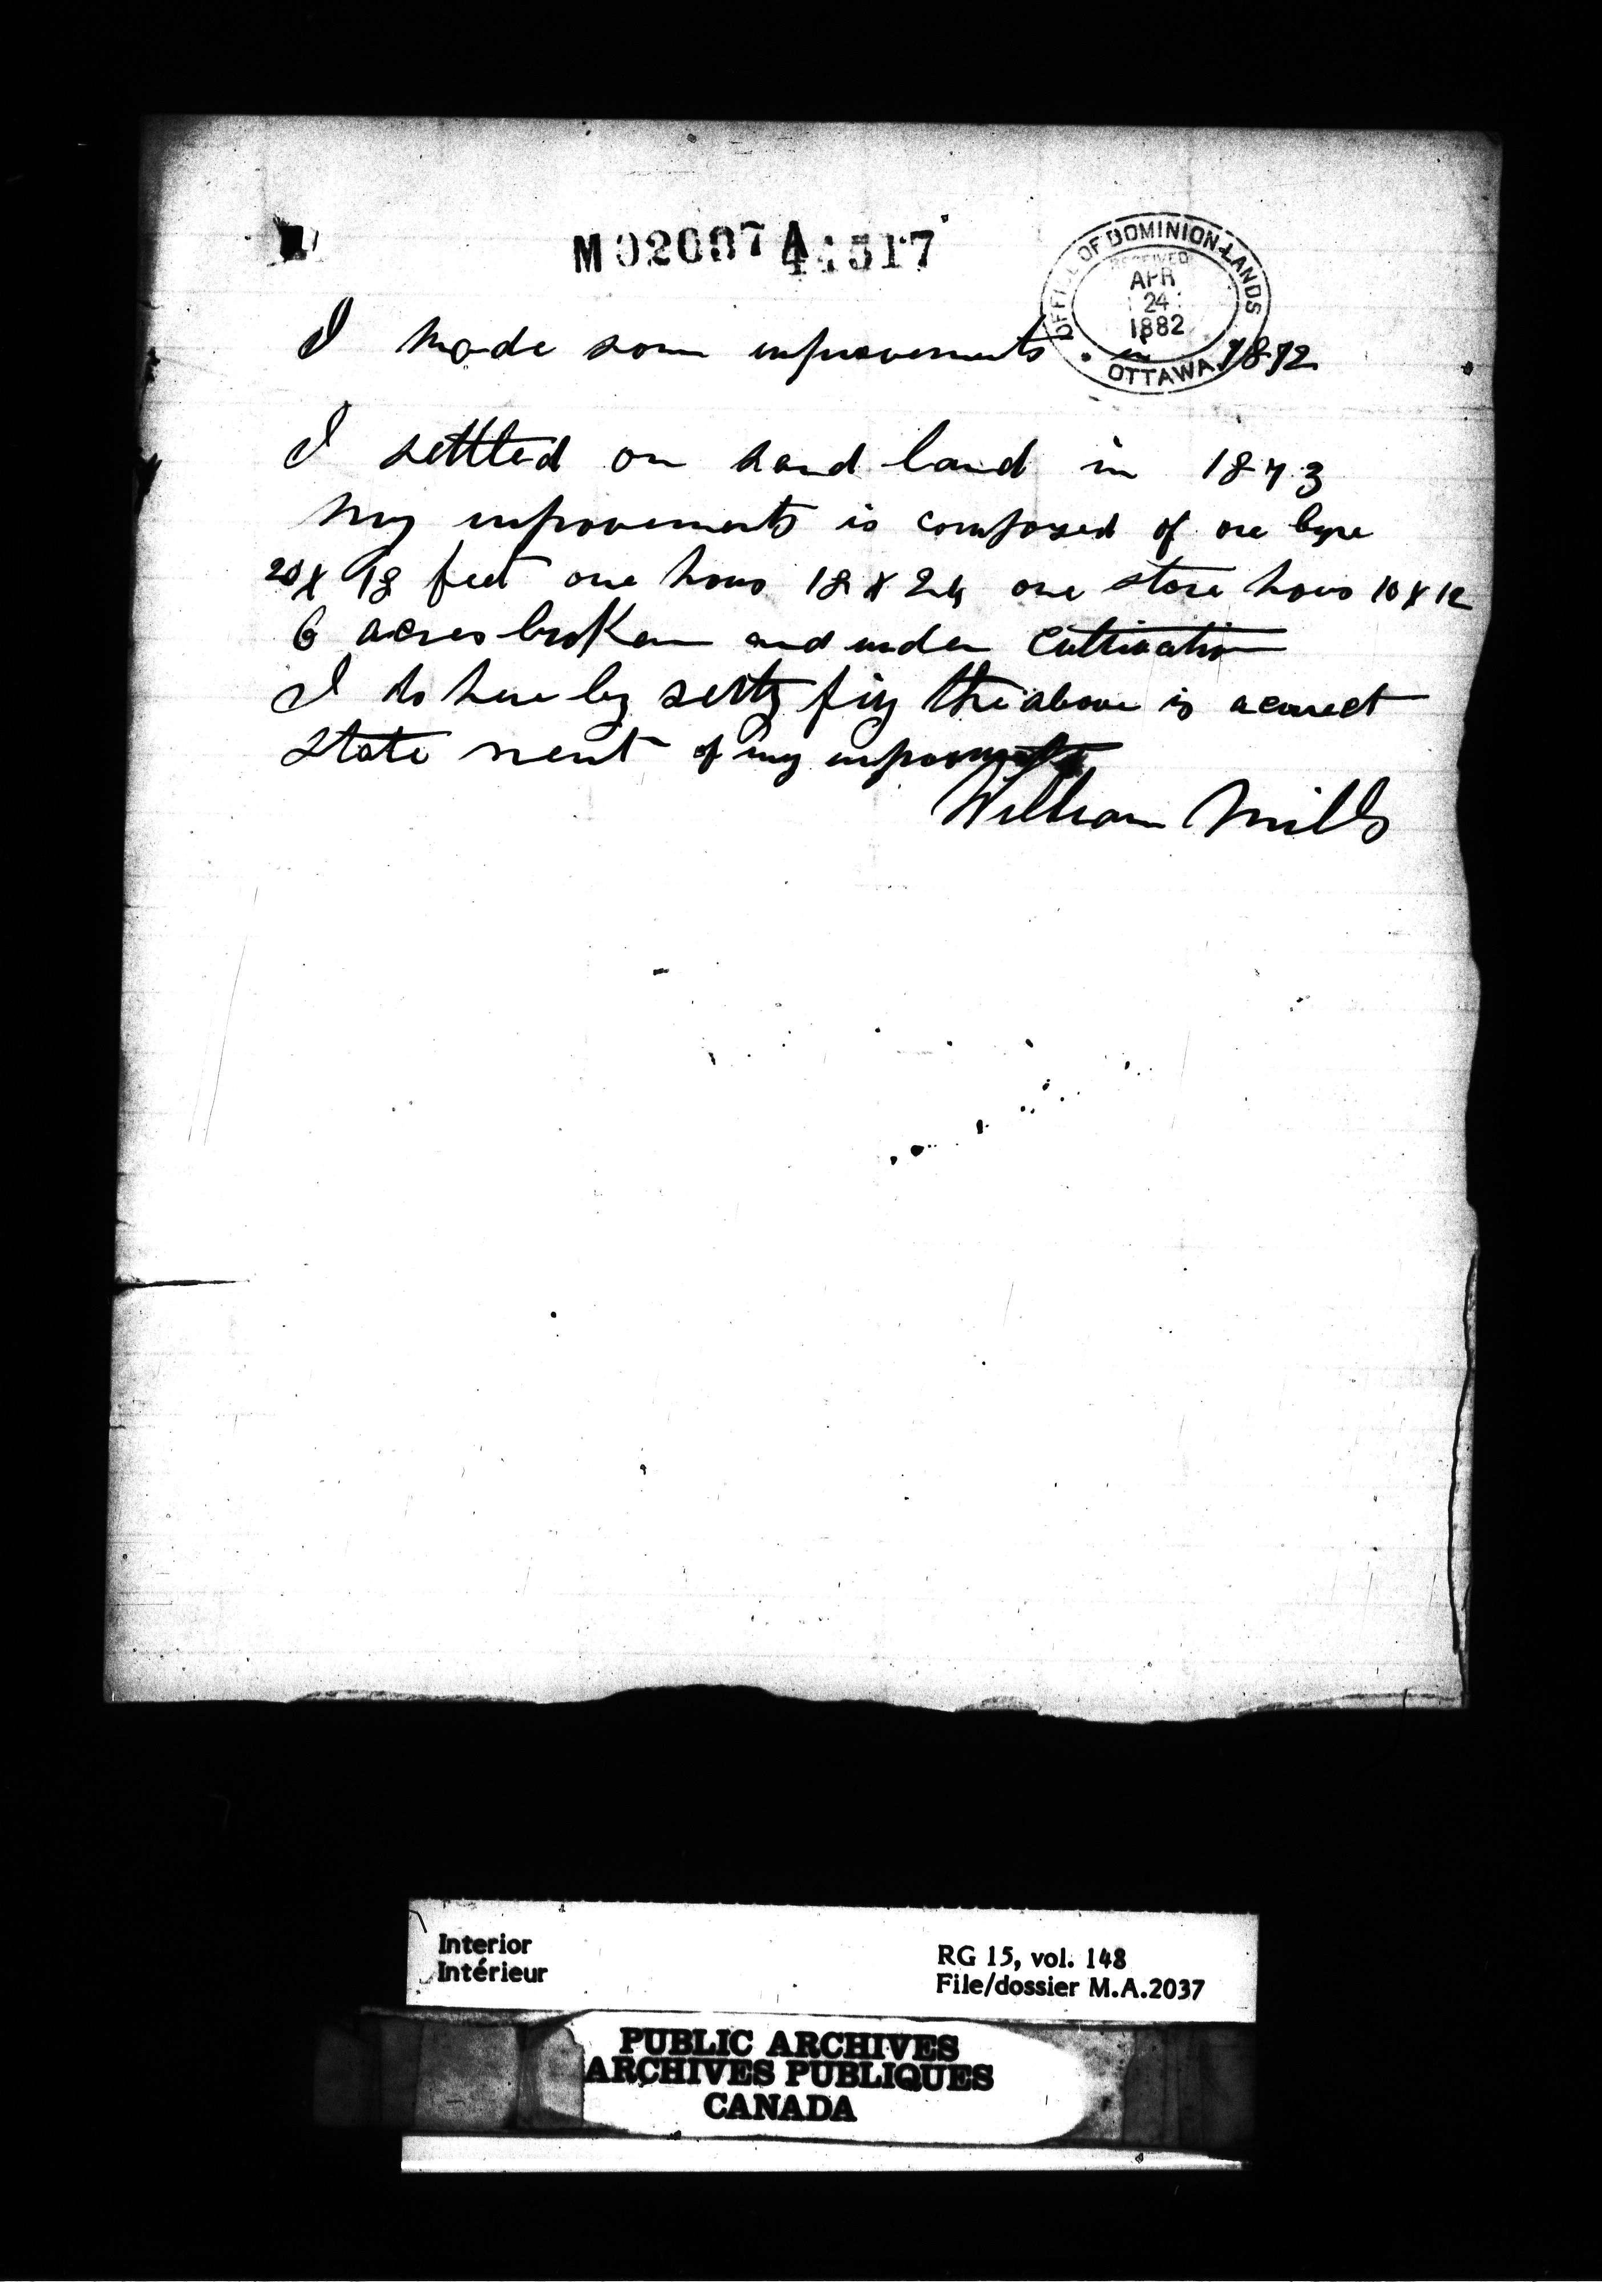 M 02037 A 517
OFFICE OF DOMINION LANDS
RECEIVED
APR
24
1882
OTTAWA
I made som improvements in 1872
I settled on sand land in 1873
my improvements is composed of one byre
20 x 18 feet one hous 18 x 24 one store hous 10 x 12
6 acres broken and under Cultivation
I do here by serty fiy the above is a correct
state ment of my
William Mills
Interior
Intérieur
RG 15, vol. 148
File/dossier M.A.2037
PUBLIC ARCHIVES
ARCHIVES PUBLIQUES
CANADA